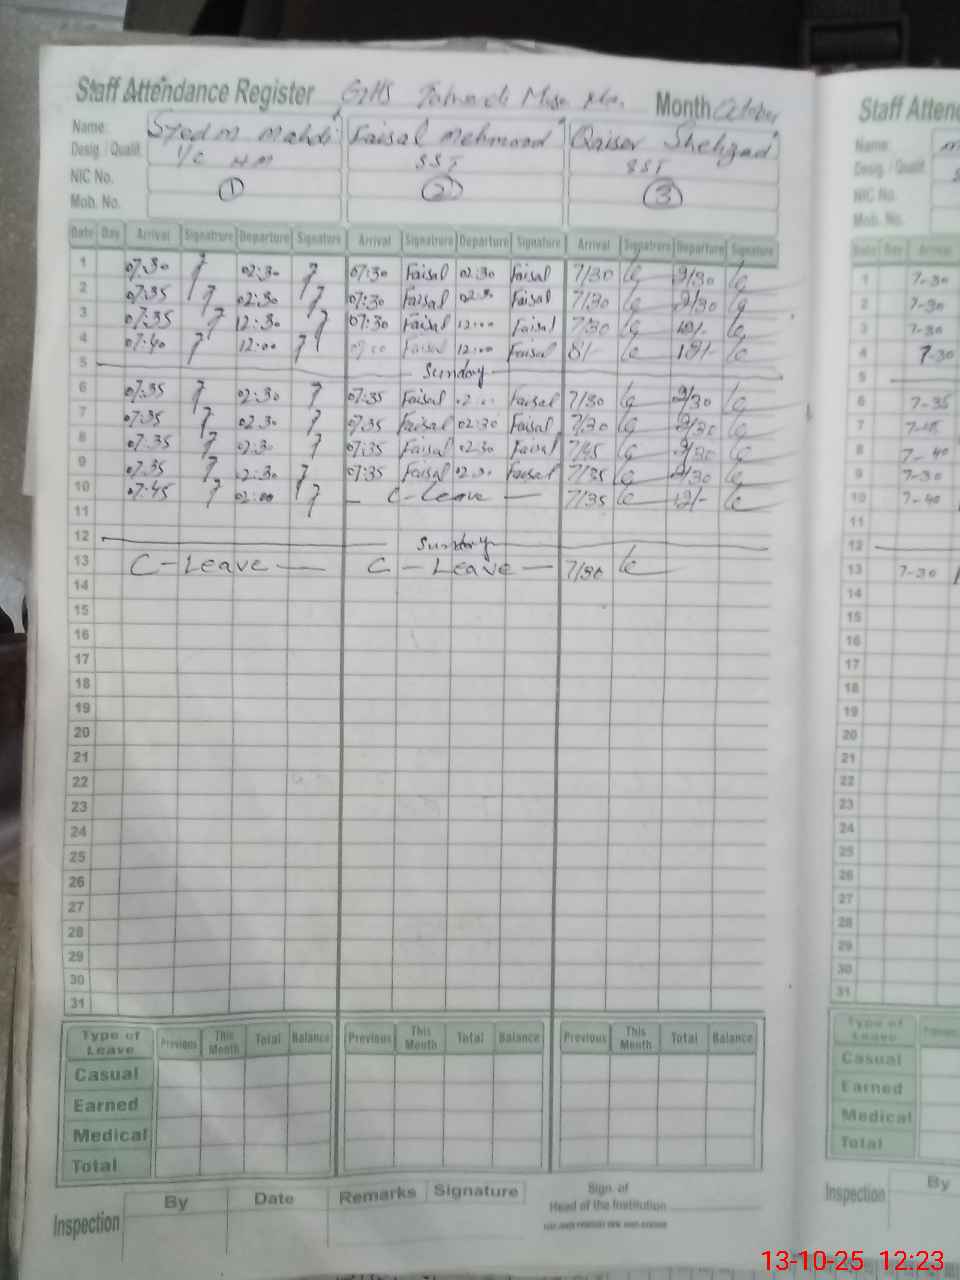 Staff Attendance Register GHS Month October
Name: Syed M Mahdi Faisal Mehmood Qaiser Shehzad
Desig. / Qualif. I/C HM SST SST
NIC No. 1 2 3
Mob. No.
Date Day Arrival Signature Departure Signature Arrival Signature Departure Signature Arrival Signature Departure Signature
1 07:30 02:30 07:30 Faisal 02:30 Faisal 7/30 2/30
2 07:35 02:30 07:30 Faisal 02:30 Faisal 7/30 2/30
3 07:35 12:30 07:30 Faisal 12:00 Faisal 7/30
4 07:40 12:00 Faisal 12:00 Faisal 8/-
5 Sunday
6 07:35 02:30 07:35 Faisal Faisal 7/30 2/30
7 07:35 02:30 07:35 Faisal 02:30 Faisal 7/30 2/30
8 07:35 02:30 07:35 Faisal 02:30 Faisal 7/35 2/30
9 07:35 02:30 07:35 Faisal 02:30 Faisal 7/35 2/30
10 07:45 02:00 C-Leave 7/35 12/-
11
12 Sunday
13 C-Leave C-Leave 7/30
14
15
16
17
18
19
20
21
22
23
24
25
26
27
28
29
30
31
Type of Leave Previous This Month Total Balance Previous This Month Total Balance Previous This Month Total Balance
Casual
Earned
Medical
Total
Inspection By Date Remarks Signature Sign. of Head of the Institution
Staff Attend
Name:
Desig. / Qualif.
NIC No.
Mob. No.
Date Day Arrival
1 7-30
2 7-30
3 7-30
4 7-30
5
6 7-35
7
8 7-40
9 7-30
10 7-40
11
12
13 7-30
14
15
16
17
18
19
20
21
22
23
24
25
26
27
28
29
30
31
Type of Leave
Casual
Earned
Medical
Total
Inspection By
13-10-25 12:23